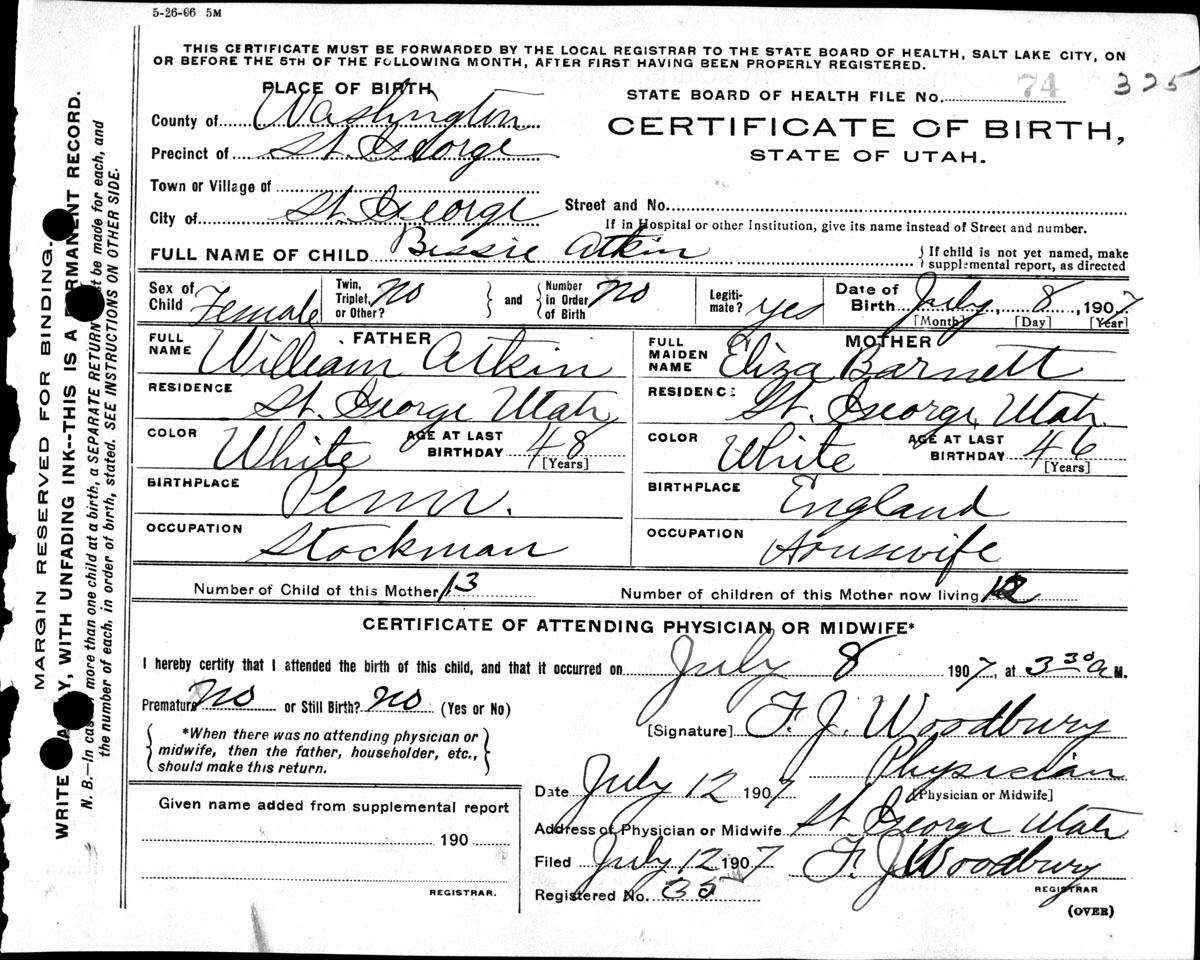 5-26-06 5M
THIS CERTIFICATE MUST BE FORWARDED BY THE LOCAL REGISTRAR TO THE STATE BOARD OF HEALTH, SALT LAKE CITY, ON
OR BEFORE THE 5TH OF THE FOLLOWING MONTH, AFTER FIRST HAVING BEEN PROPERLY REGISTERED.
PLACE OF BIRTH
STATE BOARD OF HEALTH FILE No. 74 325
County of Washington
CERTIFICATE OF BIRTH,
STATE OF UTAH.
Precinct of St. George
Town or Village of
City of St. George
Street and No.
If in Hospital or other Institution, give its name instead of Street and number.
FULL NAME OF CHILD Bessie Atkin
{ If child is not yet named, make
supplemental report, as directed
Sex of Child Female
Twin, Triplet, or Other? No } and { Number in Order of Birth No
Legiti-mate? yes
Date of Birth July 8, 1907
[Month] [Day] [Year]
FATHER
FULL NAME William Atkin
RESIDENCE St. George Utah
COLOR White AGE AT LAST BIRTHDAY 48
[Years]
BIRTHPLACE Penn.
OCCUPATION Stockman
MOTHER
FULL MAIDEN NAME Eliza Barnett
RESIDENCE St. George, Utah
COLOR White AGE AT LAST BIRTHDAY 46
[Years]
BIRTHPLACE England
OCCUPATION Housewife
Number of Child of this Mother 13
Number of children of this Mother now living 12
CERTIFICATE OF ATTENDING PHYSICIAN OR MIDWIFE*
I hereby certify that I attended the birth of this child, and that it occurred on July 8 1907, at 3 30 a M.
Premature No or Still Birth? No (Yes or No)
{ *When there was no attending physician or
midwife, then the father, householder, etc.,
should make this return. }
[Signature] F. J. Woodbury
Physician
[Physician or Midwife]
Date July 12 1907
Address of Physician or Midwife St. George Utah
Filed July 12 1907 F. J. Woodbury
REGISTRAR
Registered No. 35
(OVER)
Given name added from supplemental report
190
REGISTRAR.
MARGIN RESERVED FOR BINDING.
WRITE PLAINLY, WITH UNFADING INK--THIS IS A PERMANENT RECORD.
N. B.—In case of more than one child at a birth, a SEPARATE RETURN must be made for each, and
the number of each, in order of birth, stated. SEE INSTRUCTIONS ON OTHER SIDE.